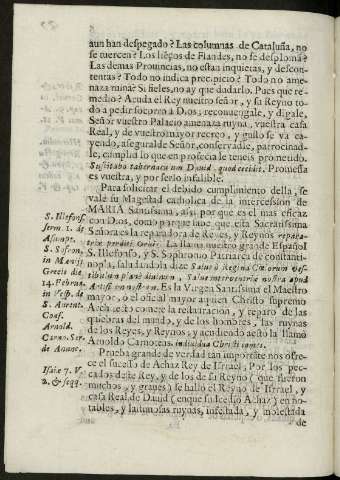 aun han despegado? Las columnas de Cataluña, no
se tuercen? Los lieços de Flandes, no se desploma?
Las demas Prouincias, no estan inquietas, y descon-
tentas? Todo no indica precipicio? Todo no ame-
naza ruina? Si fieles, no ay que dudarlo. Pues que re-
medio? Acuda el Rey nuestro señor, y su Reyno to-
do a pedir socorro a Dios, reconuengale, y digale,
Señor vuestro Palacio amenaza ruyna, vuestra casa
Real, y de vuestro mayor recreo, y gusto se va ca-
yendo, asegural de Señor, conservadle, patrocinad-
le, cumplid lo que en profecia le teneis prometido.
Suscitabo tabernaculum Dauid, quod cecidit. Promessa
es vuestra, y por serlo infalible.
Para solicitar el debido cumplimiento della, se
vale su Magestad catholica de la intercession de
MARIA Santissima, assi por que es el mas eficaz
con Dios, como porque sabe que esta Sacratissima
Señora es la reparadora de Reyes, y Reynos repara-
trix perditi Orbis. La llama nuestro grande Español
S. Illefonso, y S. Sophronio Patriarca de constanti-
nopla, saludandola dize Salue ò Regina Cælorum
Artifi en nostron. Es la Virgen Santissima el Maestro
mayor, o el oficial mayor a quien Christo supremo
Architecto comete la restauracion, y reparo de las
quiebras del mundo, y de los hombres, las ruynas
de los Reyes, y Reynos, y acudiendo a esto la llamò
Arnoldo Carnoteas. indiuidua Christi comes.
Prueba grande de verdad tan importãte nos ofre-
ce el sucesso de Achaz Rey de Israel, Por los pec-
cados deste Rey, y de los de su Reyno (que fueron
muchos, y graues) se hallò el Reyno de Israel, y
casa Real de Dauid (en que sucedio Achaz) en no-
tables, y lastimosas ruynas, infestada, y molestada
de
S. Illefons.
serm. 1. de
Asumpt.
S. Sofron.
in Mænijs
Grecis die
14. Februa.
in Vesp. de
S. Auxent.
Conf.
Arnold.
Carno. Ser.
de Annuc.
Isaiæ 7. V.
2. & seqq.